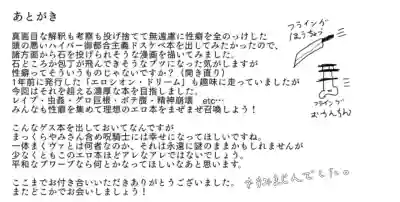 あとがき
真面目な解釈も考察も投げ捨てて無遠慮に性癖を全のっけした
頭の悪いハイパー御都合主義ドスケベ本を出してみたかったので、
諸方面から石を投げられそうな漫画を描いてみました。
石どころか包丁が飛んできそうなブツになった気がしますが
性癖ってそういうものじゃないですか？（開き直り）
1年前に発行した「エロシオン・ドリーム」も趣味に走っていましたが
今回はそれを超える濃厚な本を目指しました。
レイプ・虫姦・グロ巨根・ボテ腹・精神崩壊　etc…
みんなも性癖を集めて理想のエロ本をまぜまぜ召喚しよう！
こんなゲス本を出しておいてなんですが
まっくらやみさん含め呪騎士には幸せになってほしいですね。
一体まくヴァとは何者なのか、それは永遠に謎のままかもしれませんが
少なくともこのエロ本ほどアレなアレではないでしょう。
平和なプワープなら何とかなってほしいなあと思います。
ここまでお付き合いいただきありがとうございました。
またどこかでお会いしましょう！
フライング
ほうちょう
フライング